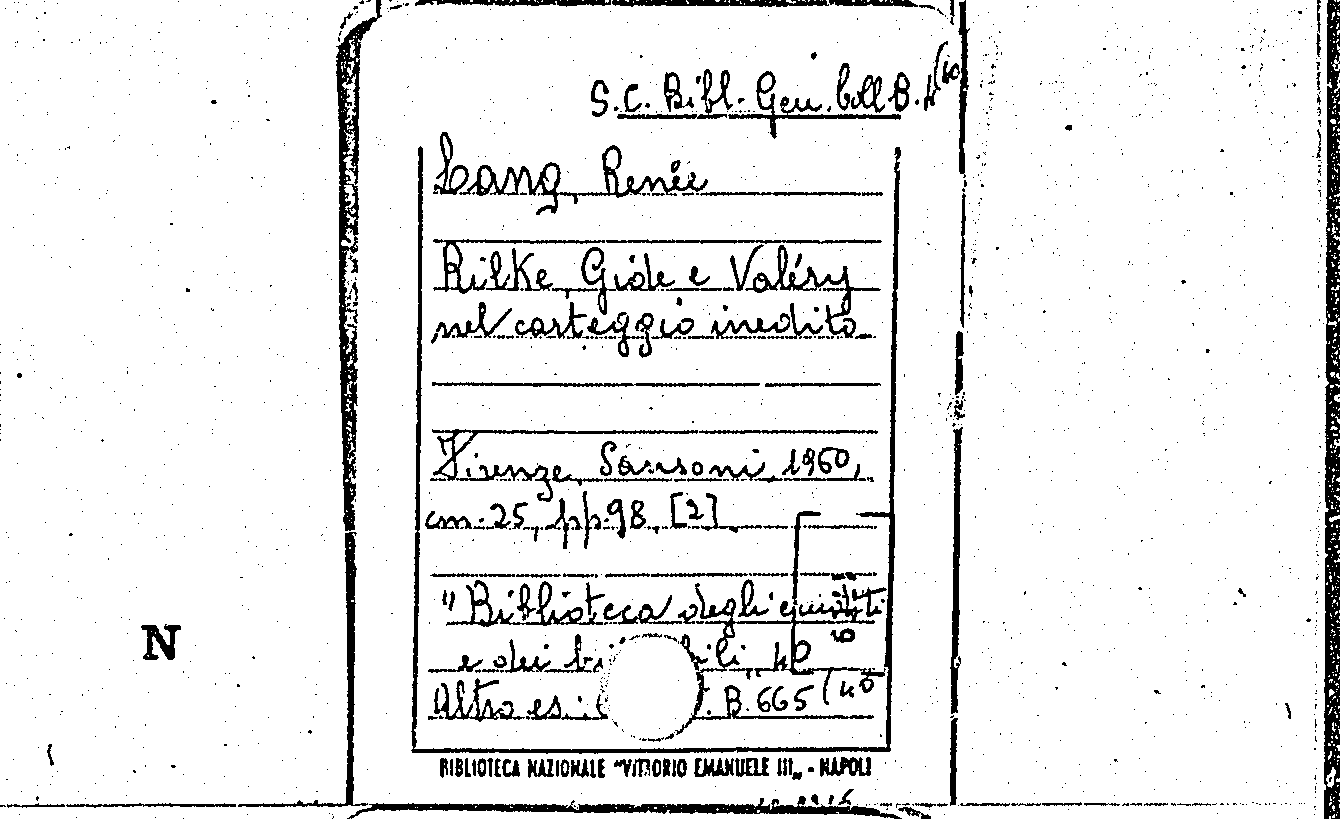 S.C. Bibl. Gen. Coll B. 4 (40
Lang, Renée
Rilke, Gide e Valéry
nel carteggio inedito.
Firenze, Sansoni, 1960,
cm. 25, pp. 98, [2].
"Biblioteca degli eruditi
e dei bi bili, 40
Altro es.: . B. 665 (40
N
BIBLIOTECA NAZIONALE "VITTORIO EMANUELE III„ - NAPOLI